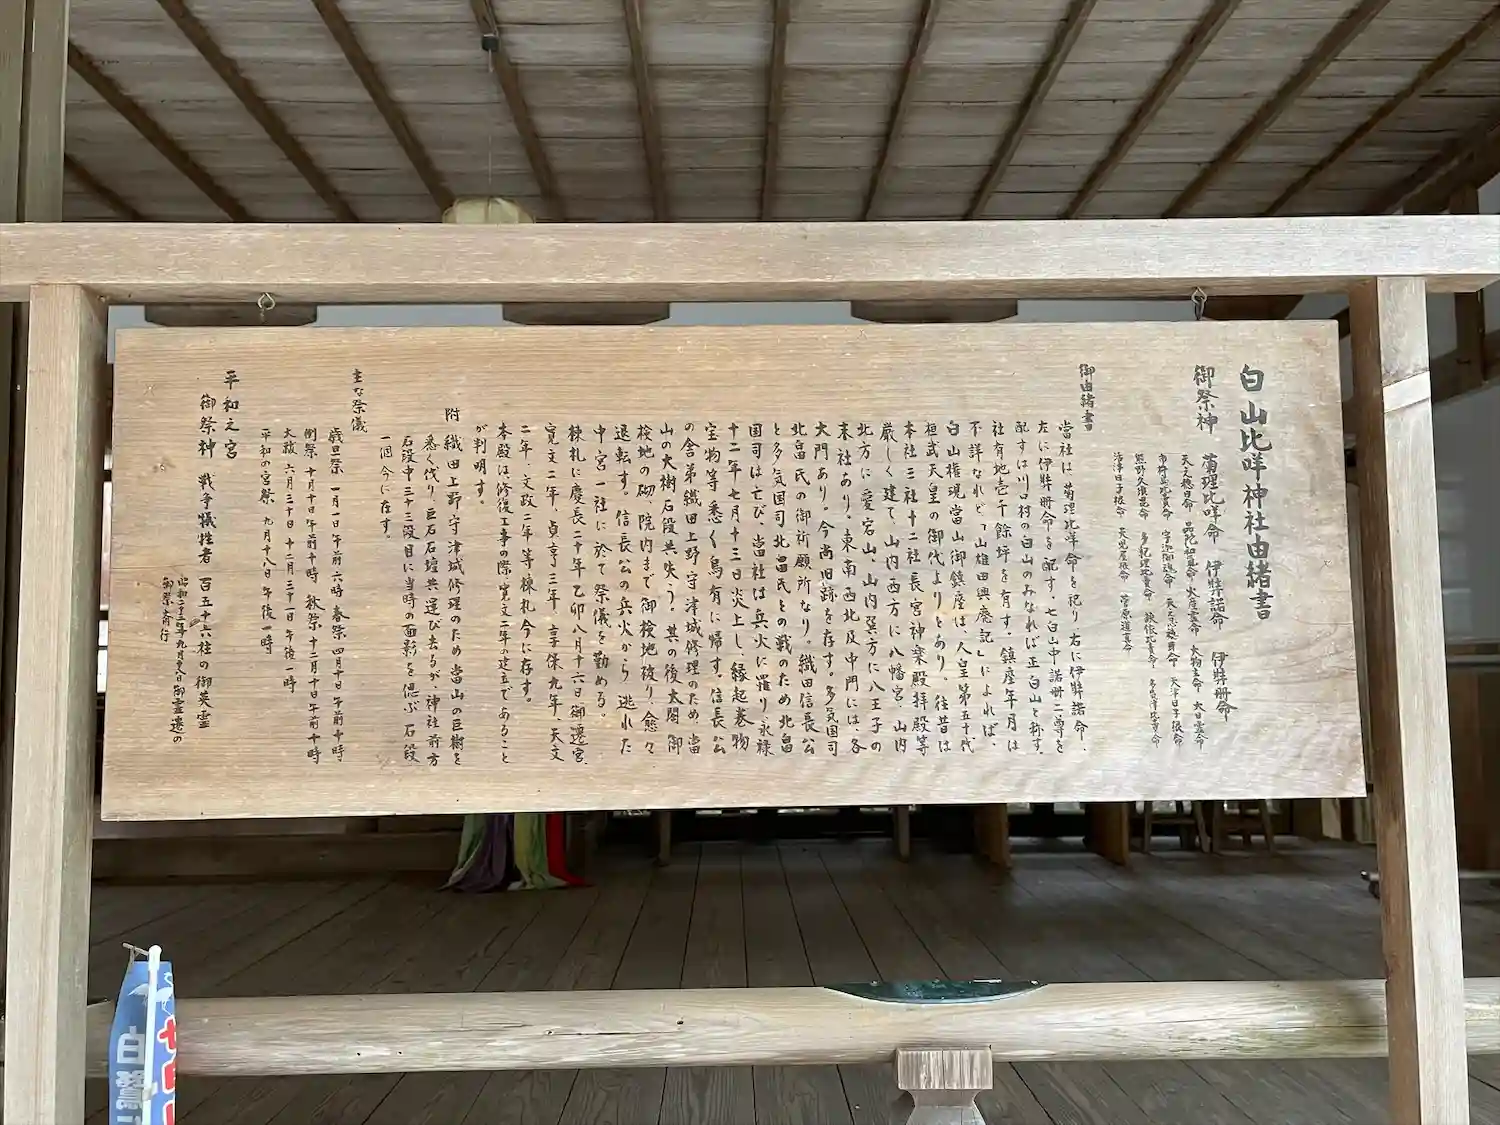 白山比咩神社由緒書
御祭神 菊理比咩命 伊弉諾命 伊弉册命
天之穂日命 火産霊命 大物主命 大日霊命
熊野久須毘命 多紀理比賣命
活津日子根命 天児屋根命 菅原道真命
御由緒書
當社は菊理比咩命を祀り右に伊弉諾命、
左に伊弉册命を配す。七白山中諾册二尊を
配すは川口村の白山のみなれば正白山と称す。
社有地壱千餘坪を有す。鎮座年月は
不詳なれど「山雄田興廃記」によれば、
白山権現當山御鎮座は、人皇第五十代
桓武天皇の御代よりとあり、往昔は
本社三社十二社長宮神楽殿拝殿等
厳しく建て、山内西方に八幡宮、山内
北方に愛宕山、山内巽方に八王子の
末社あり。東南西北及中門には、各
大門あり。今尚旧跡を存す。多気国司
北畠氏の御祈願所なり。織田信長公
と多気国司北畠氏との戦のため北畠
国司は亡び、當社は兵火に罹り永禄
十二年七月十三日炎上し、縁起巻物
宝物等悉く烏有に帰す。信長公
の舎弟織田上野守津城修理のため、當
山の大樹石段共失う。其の後太閤御
検地の砌、院内まで御検地被り、愈々
退転す。信長公の兵火から逃れた
中宮一社に於て祭儀を勤める。
棟札に慶長二十年乙卯八月十六日御遷宮、
寛文二年、貞享三年、享保九年、天文
二年、文政二年等棟札今に存す。
本殿は修復工事の際、寛文二年の建立であること
が判明す。
附 織田上野守津城修理のため當山の巨樹を
悉く伐り、巨石石壇共運び去るが、神社前方
石段中三十三段目に当時の面影を偲ぶ石段
一個今に在す。
主な祭儀
歳旦祭 一月一日午前六時 春祭 四月十日午前十時、
例祭 十月十日午前十時 秋祭 十二月十日午前十時
大祓 六月三十日 十二月三十一日 午後一時
平和の宮祭 九月十八日午後一時
平和之宮
御祭神 戦争犠牲者 百五十六柱の御英霊
御霊遷の
御祭斎行
白鷺